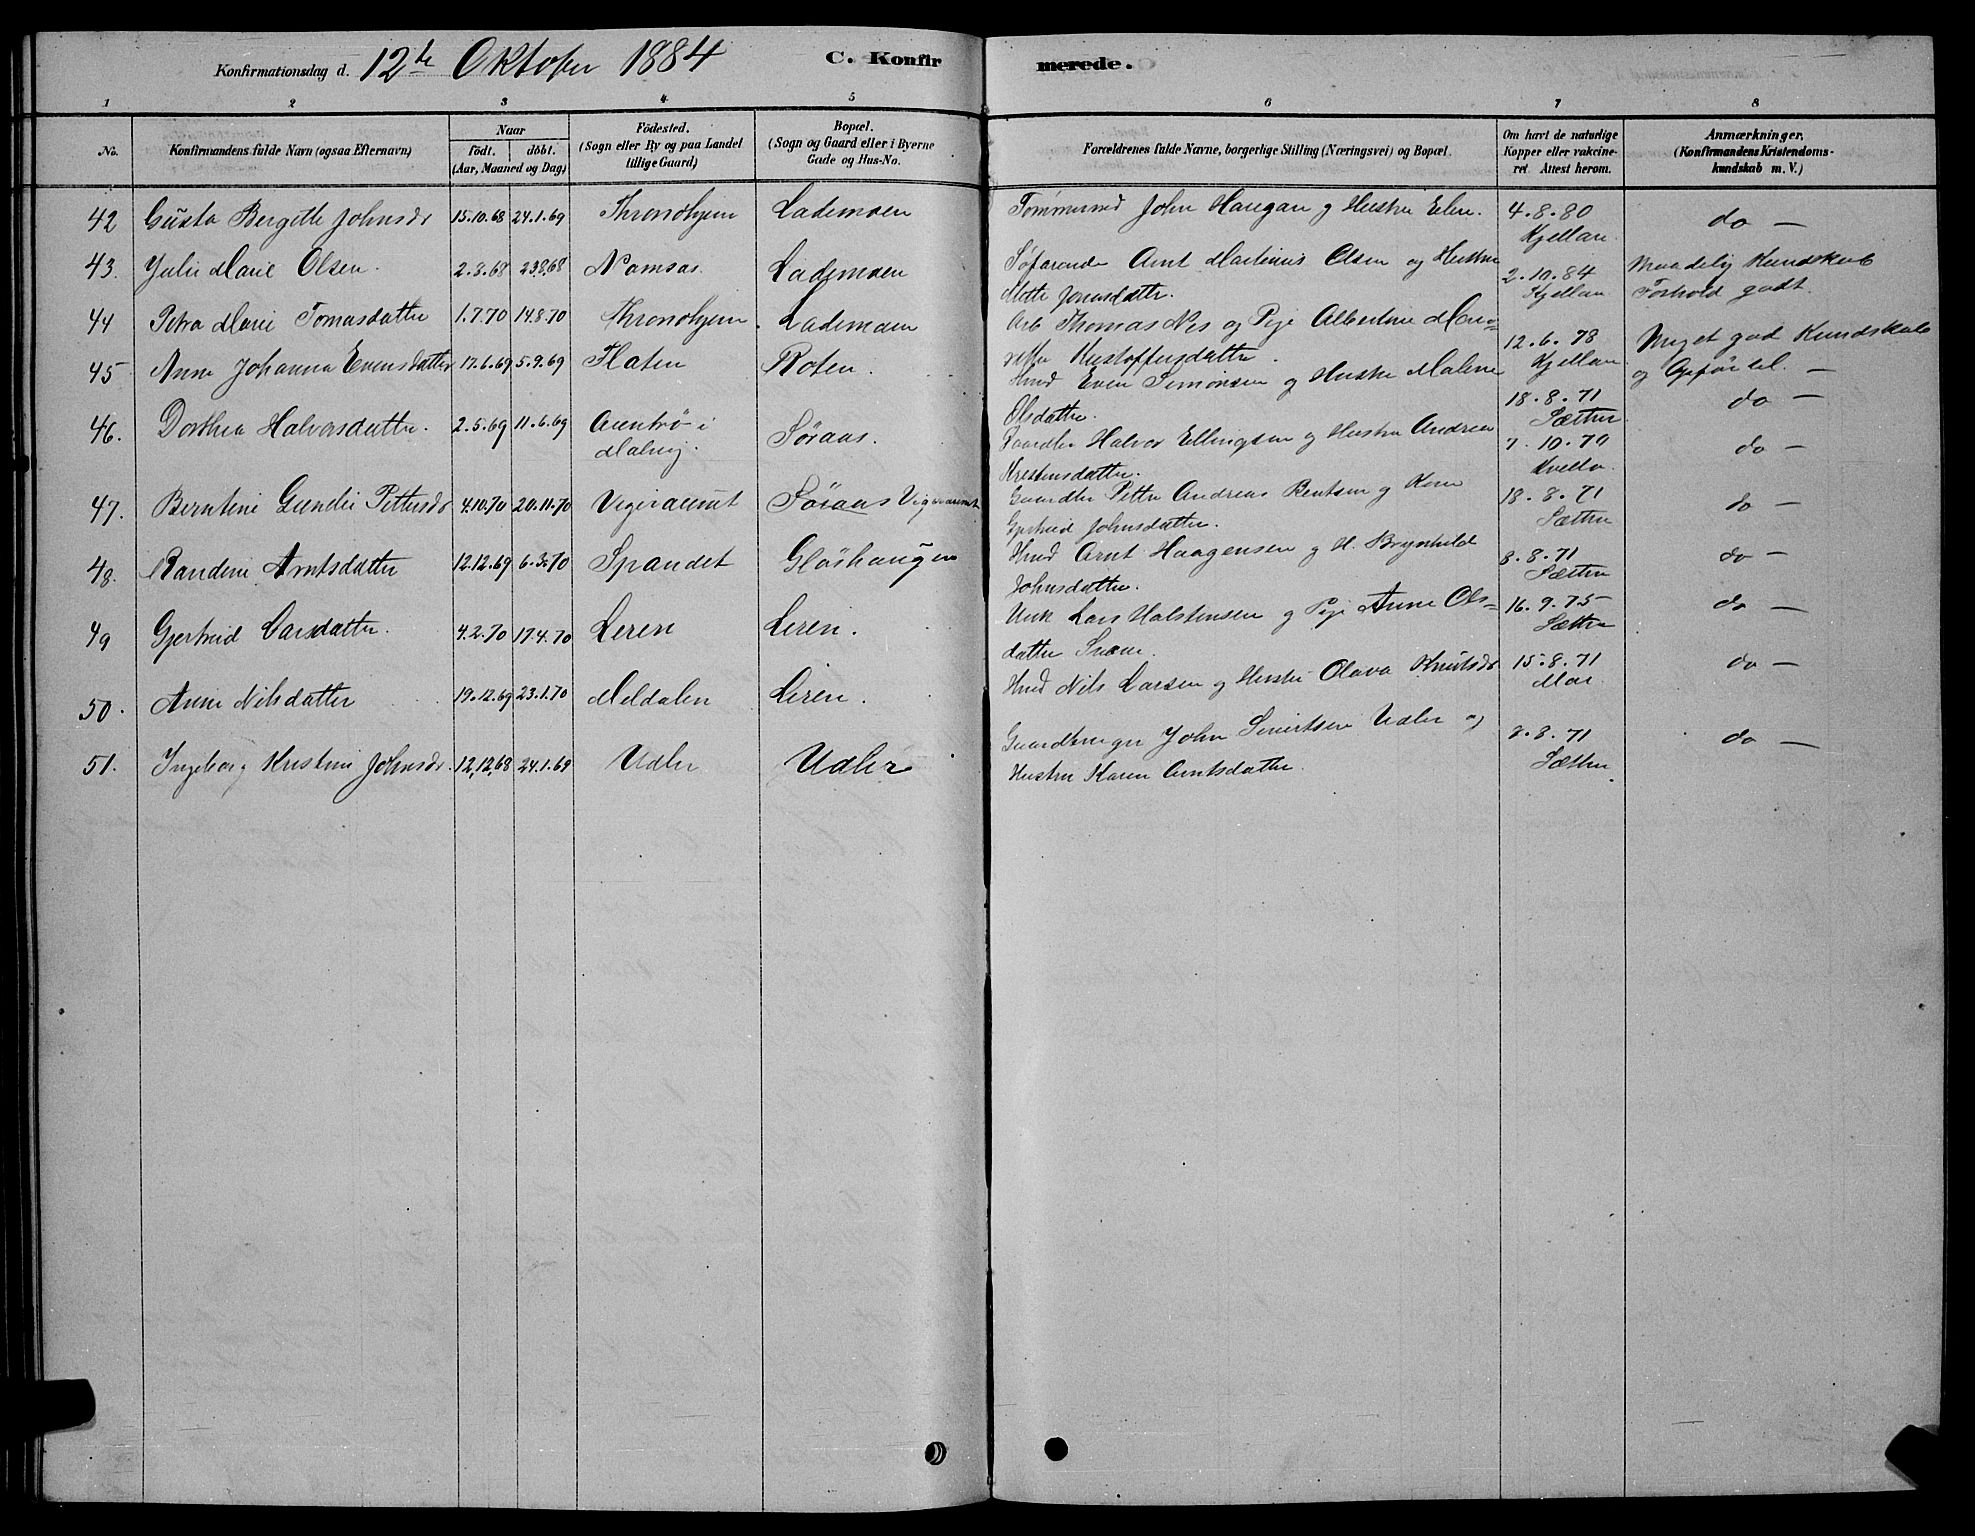 Konfirmationsdag d. 12te Oktober 1884 C. Konfirmerede.
1 2 3 4 5 6 7 8
No. Konfirmandens fulde Navn (ogsaa Efternavn) Naar födt. döbt. (Aar, Maaned og Dag) Födested. (Sogn eller By og paa Landet tillige Gaard) Bopæl. (Sogn og Gaard eller i Byerne Gade og Hus-No. Forældrenes fulde Navne, borgerlige Stilling (Næringsvei) og Bopæl. Om havt de naturlige Kopper eller vakcineret Attest herom. Anmærkninger. (Konfirmandens Kristendomskundskab m. V.)
42 Gusta Bergitte Johnsdr 15.10.68 24.1.69 Throndhjem Lademoen Tømmermd John Haugan g Hustru Elen. 4.8.80 Kjelland do —
43. Julie Marie Olsen. 2.8.68 23.8.68 Namsos. Lademoen Søfarende Arnt Martinus Olsen og Hustru
Mette Jonasdatter. 2.10.84 Kjelland Maadelig Kundskab
Forhold godt.
44 Petra Marie Tomasdatter 1.7.70 14.8.70 Throndhjem. Lademoen Arb Thomas Nes og Pige Albertine
Kristoffersdatter. 12.6.78 Kjelland Meget god Kundskab
og Opførsel. —
45 Anne Johanna Evensdatter 17.6.69 5.9.69 Flaten Roten. Hmd Even Simonsen g Hustru Malene
Olsdatter. 18.8.71 Sæther do —
46. Dorthea Halvorsdatter. 2.5.69 11.6.69 i
Malvig. Søraas. Gaardbr Halvor Ellingsen g Hustru Andrea
Kristensdatter. 7.10.79 do —
47. Berntine Gundei Pettersdr 4.10.70 20.11.70 Vigeraunet Søraas Vigeraunet Gaardbr Petter Andreas Bentsen g Kone
Gjertrud Johnsdatter. 18.8.71 Sæther do —
48. Randine Arntsdatter 12.12.69 6.3.70 Spandet Gløshaugen Hmd Arnt Haagensen g H. Brynhild
Johnsdatter. 8.8.71 Sæther do —
49 Gjertrud Larsdatter. 4.2.70 17.4.70 Leren Leren. Unk Lars Halstensen g Pige Anne Ols-
datter 16.9.75 Sæther do —
50. Anne Nilsdatter 19.12.69 23.1.70 Meldalen Leren. Hmd Nils Larsen g Hustru Olava Knutsdr 15.8.71 Moe. do —
51. Ingeborg Kristine Johnsdr. 12.12.68 24.1.69 Udler Udler Gaardbruger John Sivertsen Udler og
Hustru Karen Arntsdatter. 8.8.71 Sæther. do —